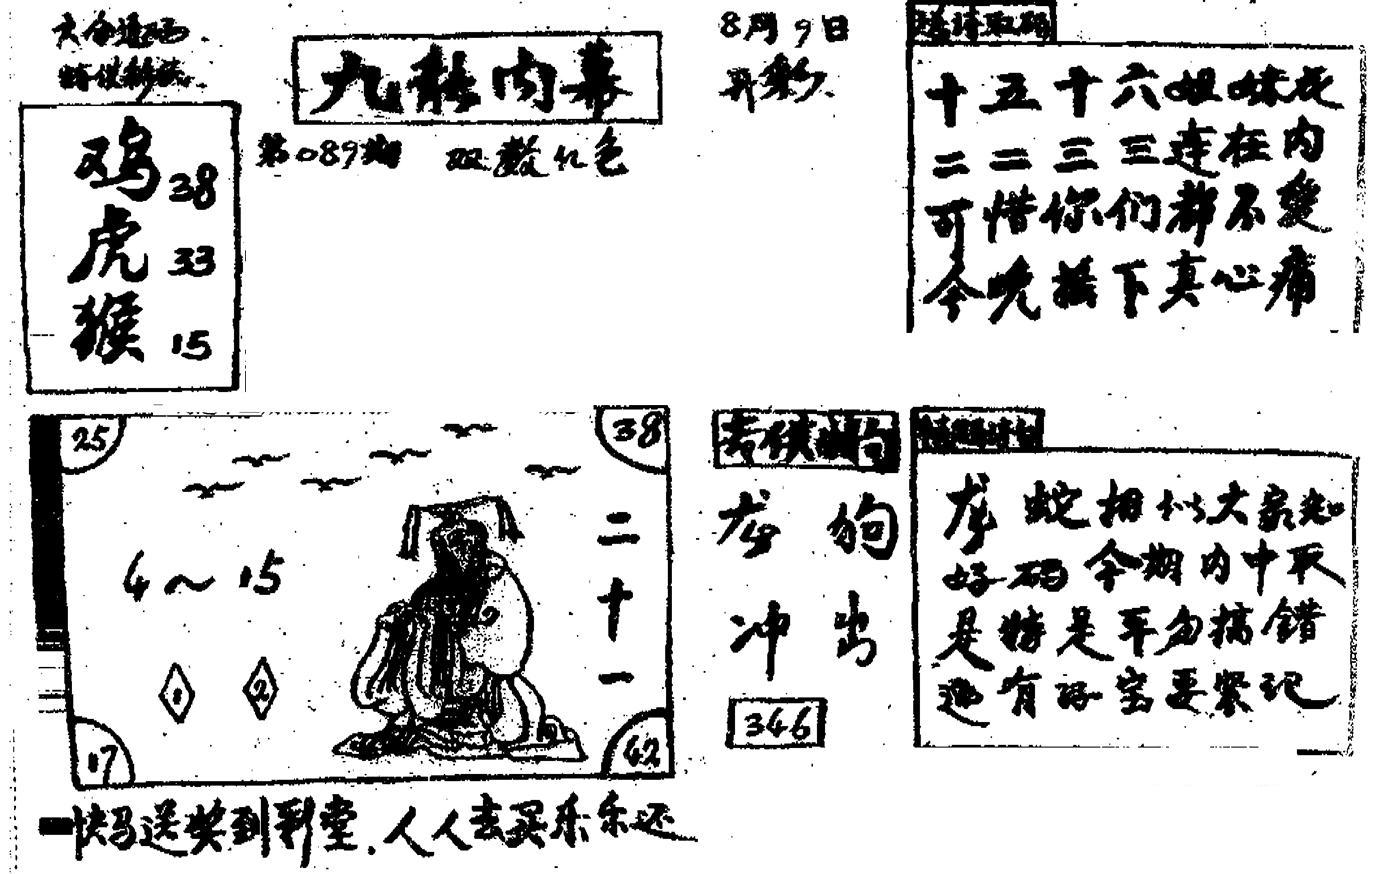 九龙内幕
第089期 双数红色
8月9日
开彩
鸡 38
虎 33
猴 15
十五十六姐妹花
二二三三连在内
可惜你们都不爱
今晚摇下真心痛
25
38
4~15
二十一
1 2
17
42
快马送奖到彩堂,人人去买乐乐还
龙狗
冲出
346
龙蛇相似大家知
好码今期内中取
是特是平勿搞错
还有好字要紧记